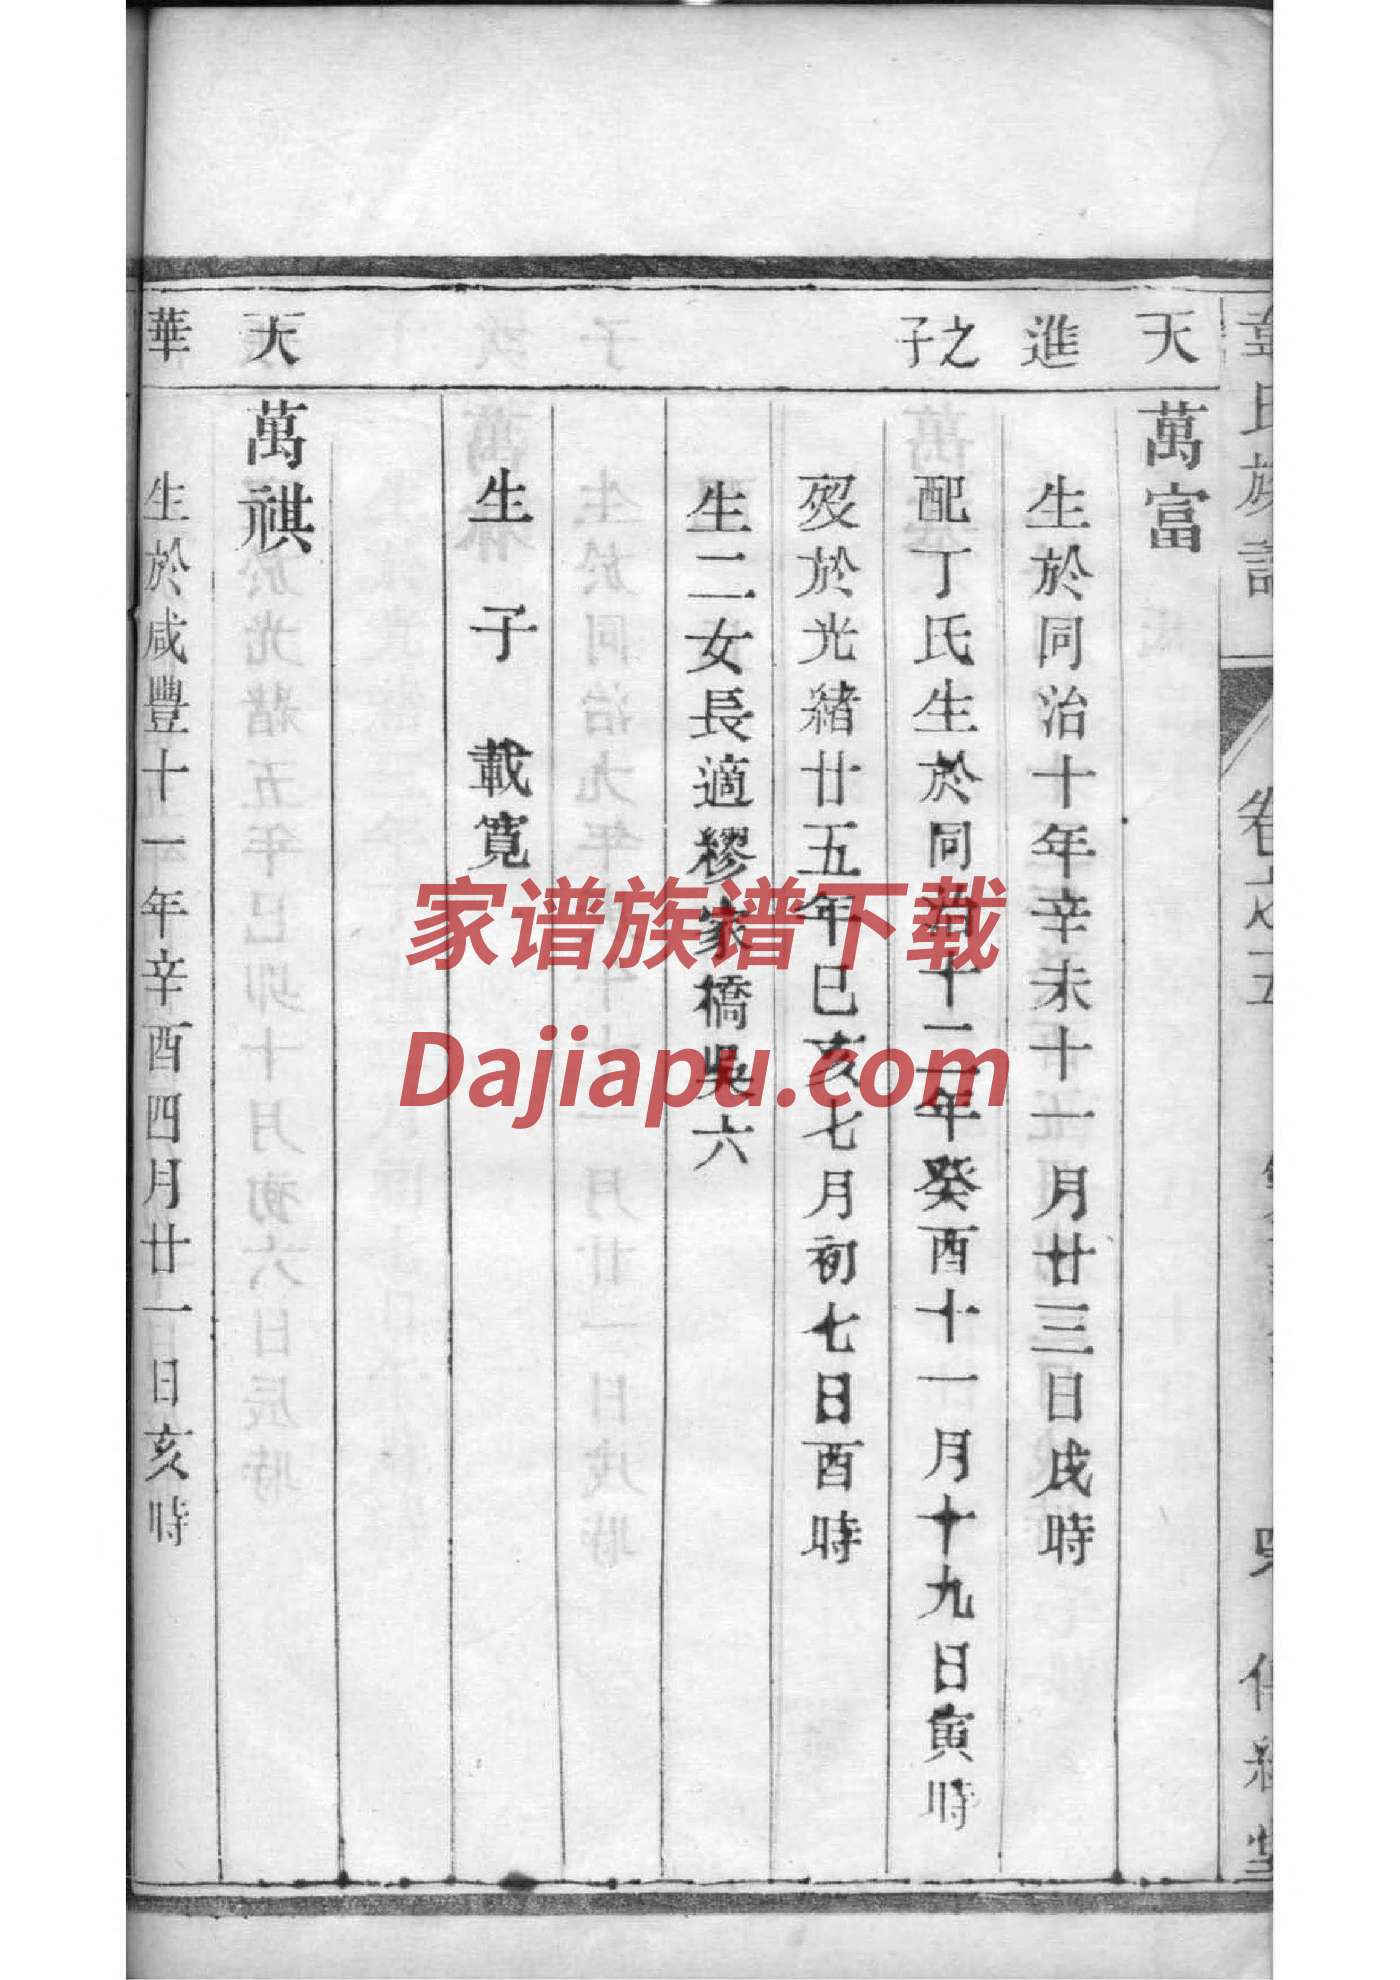 氏族譜
卷之五
天 萬富
進 生於同治十年辛未十一月廿三日戌時
之子 配丁氏生於同治十二年癸酉十一月十九日寅時
歿於光緒廿五年巳亥七月初七日酉時
生二女長適繆家橋吳六
生子載寬
天 萬祺
華 生於咸豐十一年辛酉四月廿一日亥時
家谱族谱下载
Dajiapu.com